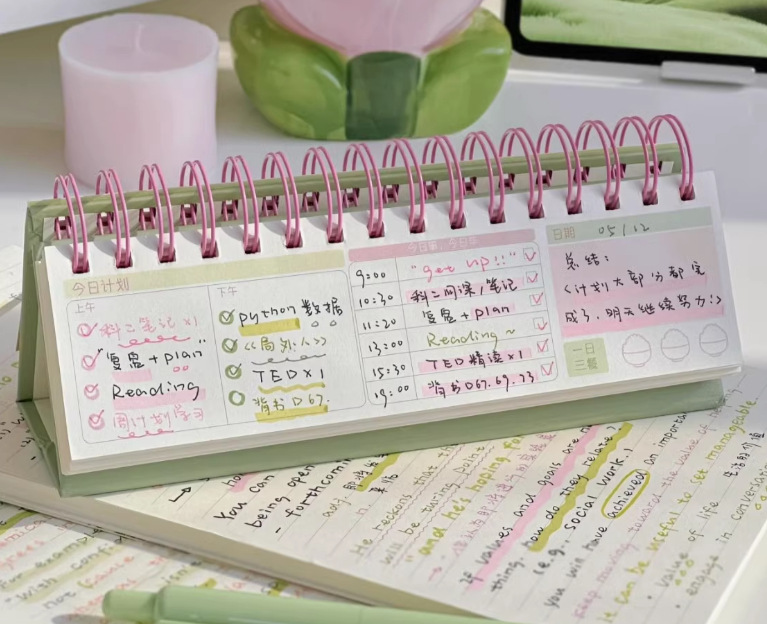 今日计划
上午
科二笔记 x1
"复盘 + plan"
Reading
周计划学习
下午
python 数据
《局外人》
TED X 1
背书 D67.
今日事,今日毕
9:00 "get up!!"
10:30 科二网课,笔记
11:20 复盘 + plan
13:00 Reading ~
15:30 TED 精读 x1
19:00 背书 D67. 69. 73
日期 05/12
总结:
<计划大部分都完
成了,明天继续努力!>
一日
三餐
You can
being open
- forthcoming
adj.
He reckons that
will be turning point
" and he's looking fo
if values and goals are
thing, how do they relate,
(e.g., social work,
you will have achieved an importa
keep moving toward the value of
it can be useful to set manageable
生活的价值
· value of life
· engage in conversati
For exampl
"with confi